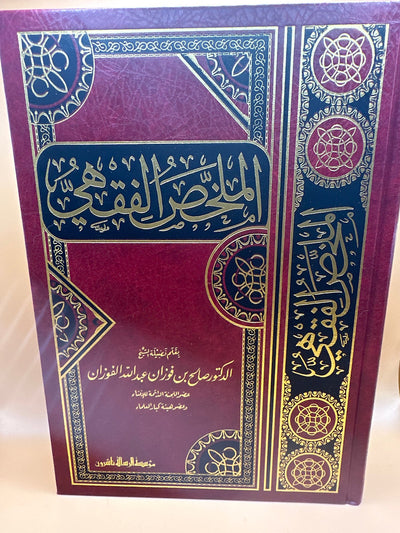 الملخص الفقهي
بقلم فضيلة الشيخ
الدكتور صالح بن فوزان عبد الله الفوزان
عضو اللجنة الدائمة للإفتاء
وعضو هيئة كبار العلماء
مؤسسة الرسالة ناشرون
الملخص الفقهي